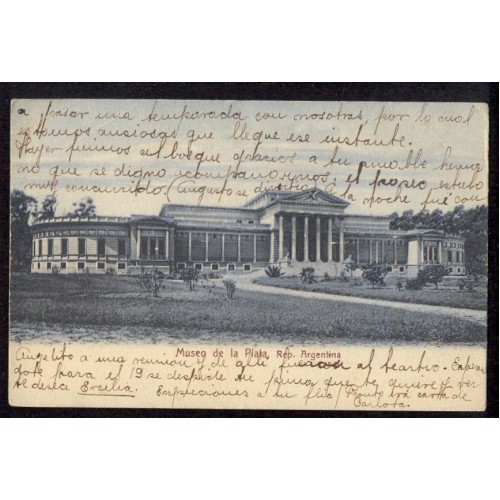 a pasar una temporada con nosotras, por lo cual
estamos ansiosas que llegue ese instante.
Hayer fuimos al bosque gracias a tu amable herma
no que se digno acompañarnos, el paseo estuvo
muy concurrido, Augusto se a la noche fué con
Museo de la Plata, Rep. Argentina
Angelito a una reunion y de alli fueron al teartro. Esperan
dote para el 19 se despide tu prima que te quiere y ver
te desea Ercilia. Expresiones a tu flia/ Pronto irá carta de
Carlota.